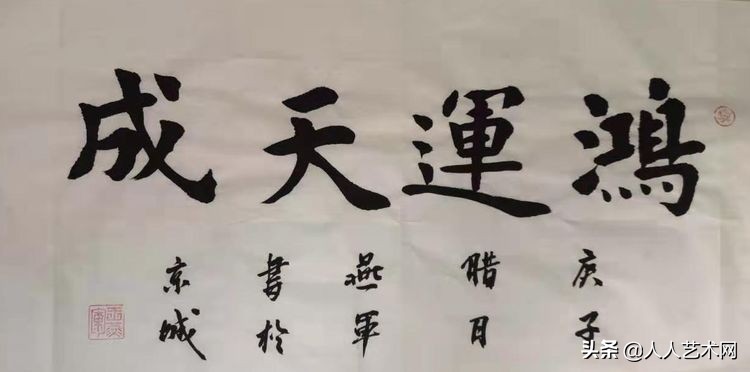 鴻運天成
庚子
腊月
燕軍
書於
京城
头条 @人人艺术网